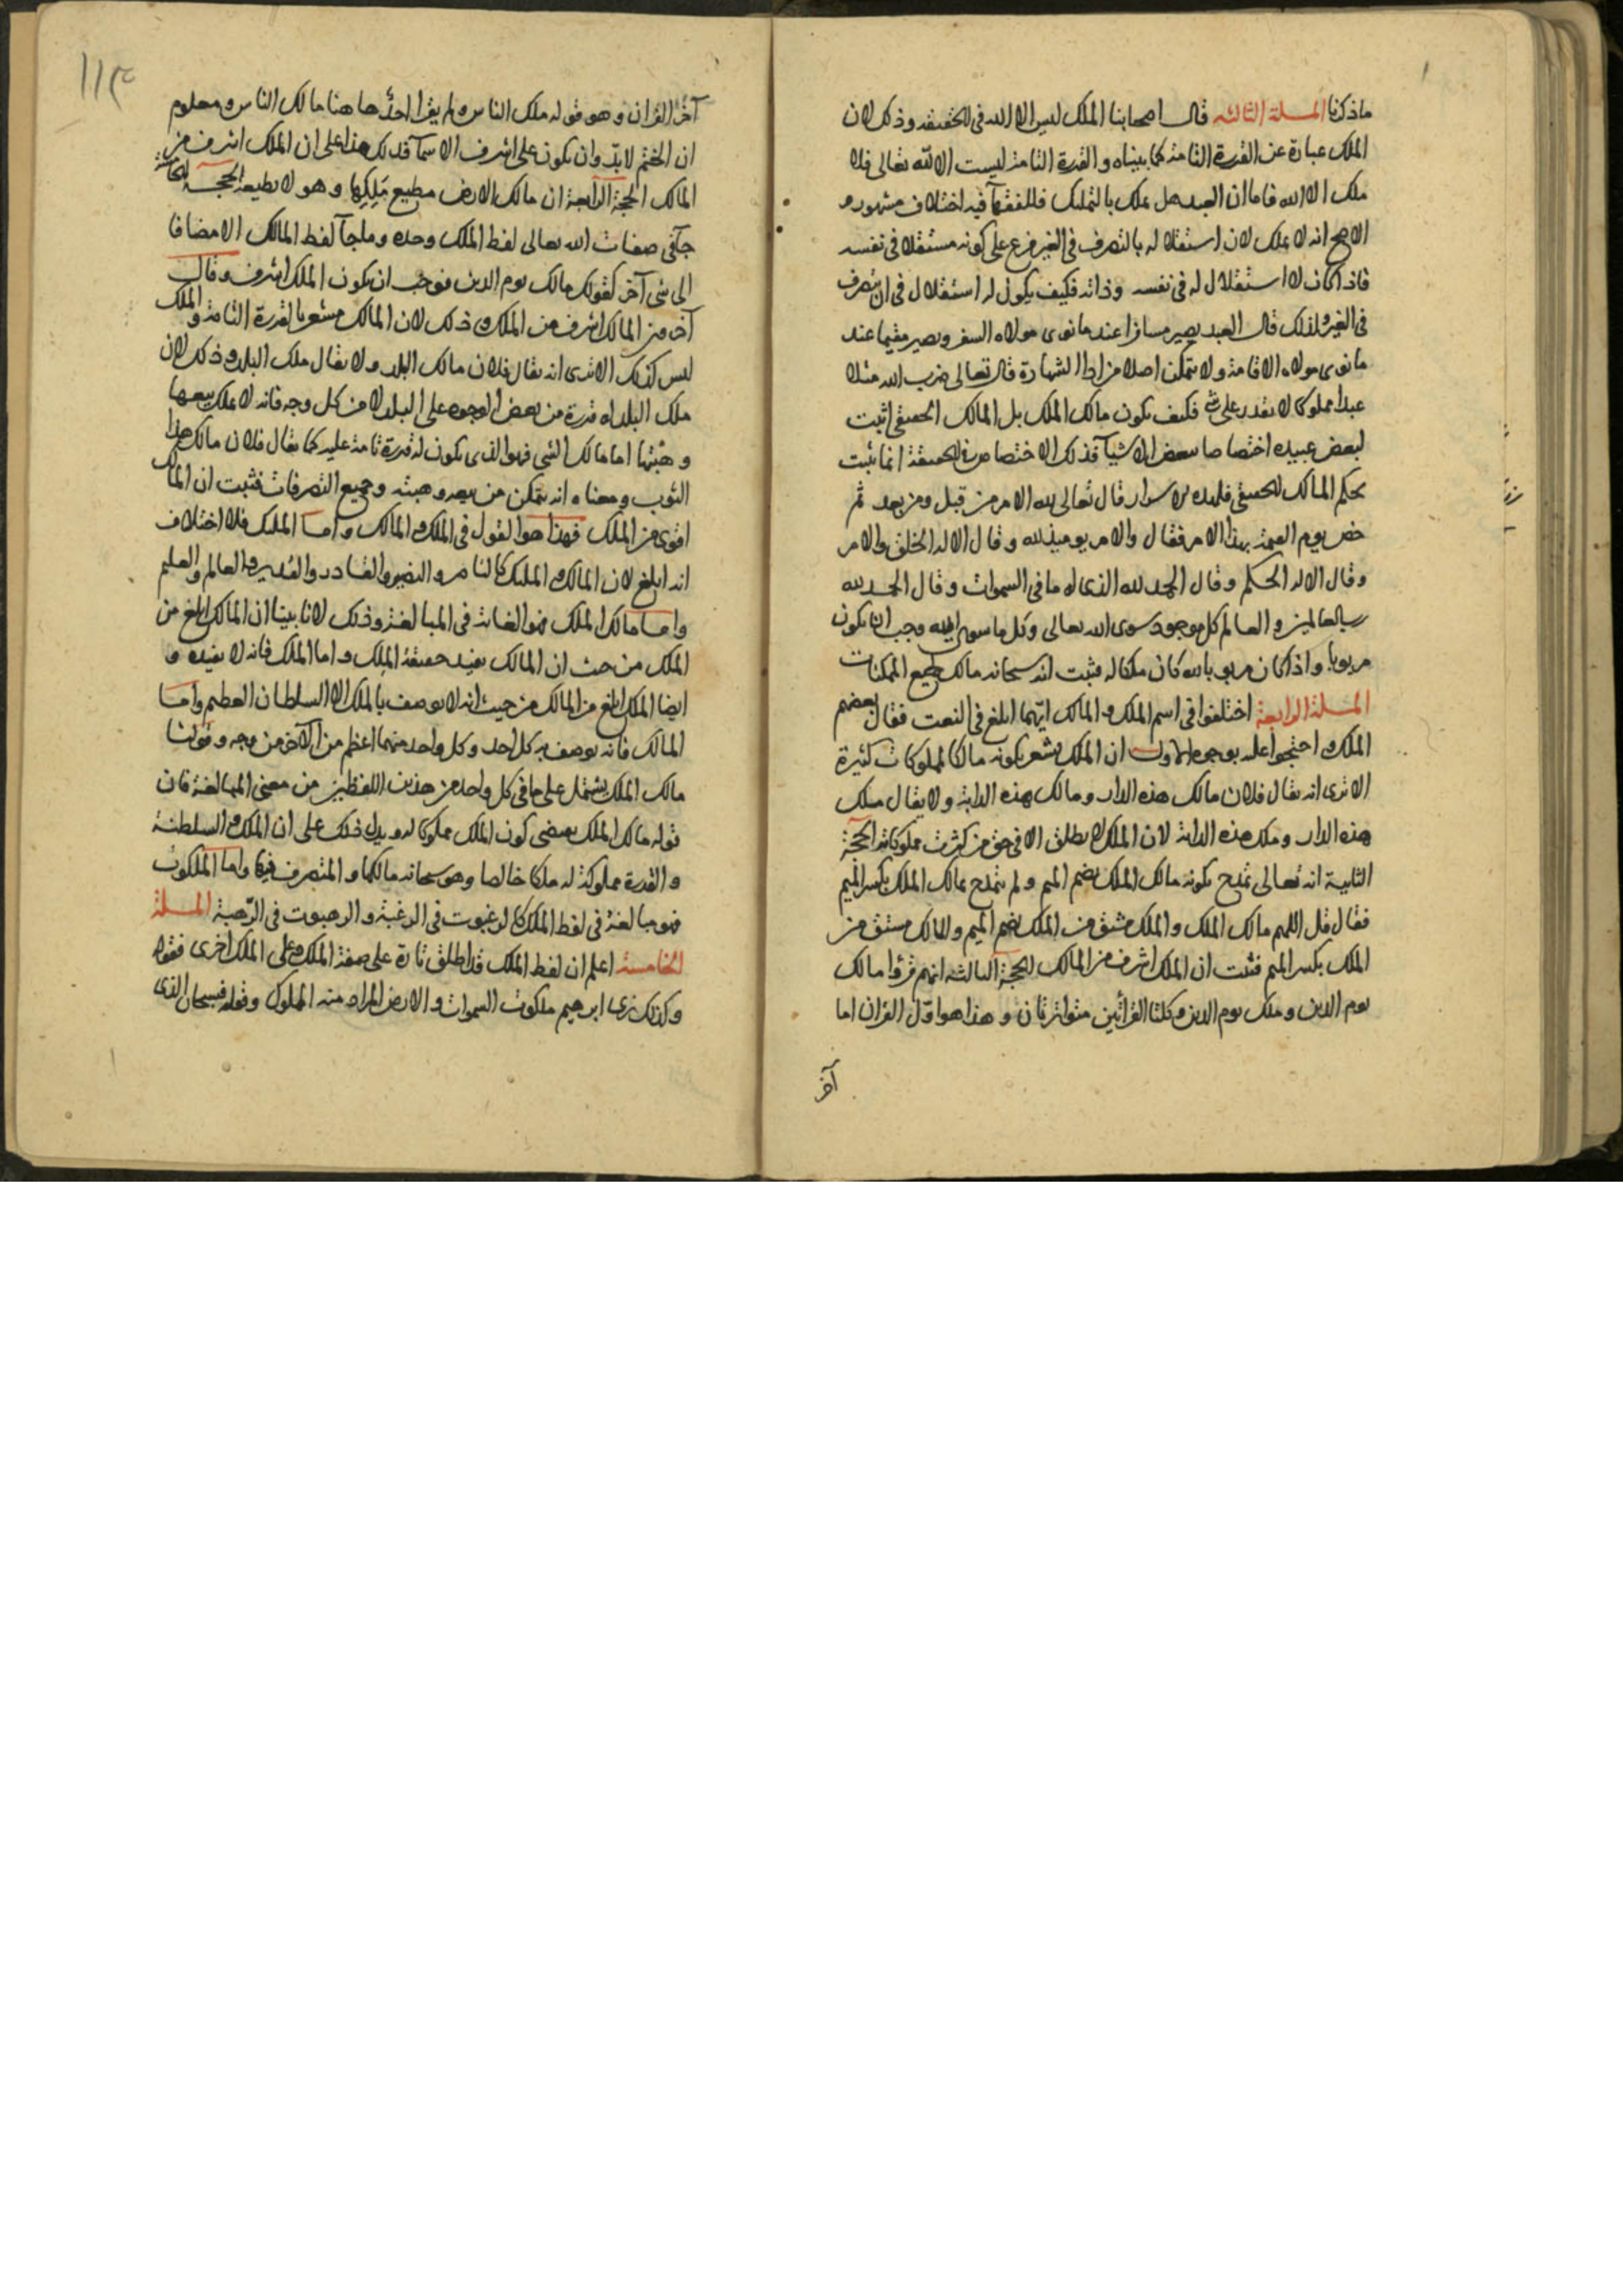 ماذكرنا المسلة الثالثه قال اصحابنا الملك ليس الا الله في الحقيقه وذلك لان
الملك عبارة عن القدرة التامة كما بيناه والقدرة التامة ليست الا لله تعالى فلا
ملك الا الله فاما ان العبد هل يملك بالتمليك فللفقهآ فيه اختلاف مشهور و
الاصح انه لا يملك لان استقلاله بالتصرف في الغير فرع على كونه مستقلا في نفسه
فاذا كان لا استقلال له في نفسه وذاته فكيف يكون له استقلال في ان يتصرف
في الغير ولذلك قال العبد يصير مسافرا عند ما نوى مولاه السفر ويصير مقيما عند
ما نوى مولاه الاقامة ولا يتمكن اصلا من الشهادة قال تعالى ضرب الله مثلا
عبدا مملوكا لا يقدر على شي فكيف يكون مالك الملك بل المالك الحقيقي اثبت
لبعض عبيده اختصاصا ببعض الاشيآ فذلك الاختصاص في الحقيقة انما يثبت
بحكم المالك الحقيقي قال تعالى لله الامر من قبل ومن بعد ثم
خص يوم القيمة بهذا الامر فقال والامر يوميذ لله وقال الا له الخلق والامر
وقال الا له الحكم وقال الحمد لله الذي له ما في السموات وقال الحمد لله
رب العالمين والعالم كل موجود سوى الله تعالى وكل ما سوى الله وجب ان يكون
مربوبا واذا كان مربوبا لله كان ملكا له فثبت انه سبحانه مالك جميع الممكنات
المسلة الرابعة اختلفوا في اسم الملك والمالك ايهما ابلغ في النعت فقال بعضهم
الملك واحتجوا عليه بوجوه الاول ان الملك يشعر بكونه مالكا لمملوكات كثيرة
الا ترى انه يقال فلان مالك هذه الدار ومالك هذه الدابة ولا يقال ملك
هذه الدار وملك هذه الدابة لان الملك لا يطلق الا في حق من كثرت مملوكاته الحجة
الثانية انه تعالى تمدح بكونه مالك الملك بضم الميم ولم يتمدح بمالك الملك بكسر الميم
فقال قل اللهم مالك الملك والملك مشتق من الملك بضم الميم والمالك مشتق من
الملك بكسر الميم فثبت ان الملك اشرف من المالك الحجة الثالثه انهم قرؤا مالك
يوم الدين وملك يوم الدين وكلتا القراتين متواترتان وهذا هو اول القران اما
آخر
آخر القران وهو قوله ملك الناس ولم يقرا احد ها هنا مالك الناس ومعلوم
ان الختم لا بد وان يكون على اشرف الاسمآ فدل هذا على ان الملك اشرف من
المالك الحجة الرابعة ان مالك الارض مطيع ملكها وهو لا يطيعه الحجة الخامسة
جآ في صفات الله تعالى لفظ الملك وحده وما جآ لفظ المالك الا مضافا
الى شي آخر كقوله مالك يوم الدين فوجب ان يكون الملك اشرف وقال
آخرون المالك اشرف من الملك وذلك لان المالك مشعر بالقدرة التامة والملك
ليس كذلك الا ترى انه يقال فلان مالك البلد ولا يقال ملك البلد وذلك لان
ملك البلد له قدرة من بعض الوجوه على البلد لا من كل وجه فانه لا يملك بيعها
وهبتها اما مالك الشي فهو الذي يكون له قدرة تامة عليه كما يقال فلان مالك هذا
الثوب ومعناه انه يتمكن من بيعه وهبته وجميع التصرفات فثبت ان المالك
اقوى من الملك فهذا هو القول في الملك والمالك واما المليك فلا اختلاف
انه ابلغ لان المالك والمليك كالناصر والنصير والقادر والقدير والعالم والعليم
واما مالك الملك فهو الغاية في المبالغة وذلك لانا بينا ان المالك ابلغ من
الملك من حيث ان المالك يفيد حقيقة الملك واما الملك فانه لا يفيده و
ايضا الملك ابلغ من المالك من حيث انه لا يوصف بالملك الا السلطان العظيم واما
المالك فانه يوصف به كل احد وكل واحد منهما اعظم من الآخر من وجه وقولنا
مالك الملك يشتمل على ما في كل واحد من هذين اللفظين من معنى المبالغة فان
قوله مالك الملك يقتضي كون الملك مملوكا له ويدل ذلك على ان الملك والسلطنة
والقدرة مملوكة له ملكا خالصا وهو سبحانه مالكها والمتصرف فيها واما الملكوت
فهو مبالغة في لفظ الملك كالرغبوت في الرغبة والرهبوت في الرهبة المسلة
الخامسة اعلم ان لفظ الملك قد اطلق تارة على صفة الملك وعلى الملك اخرى فقوله
وكذلك نرى ابرهيم ملكوت السموات والارض المراد منه المملوك وقوله فسبحان الذي